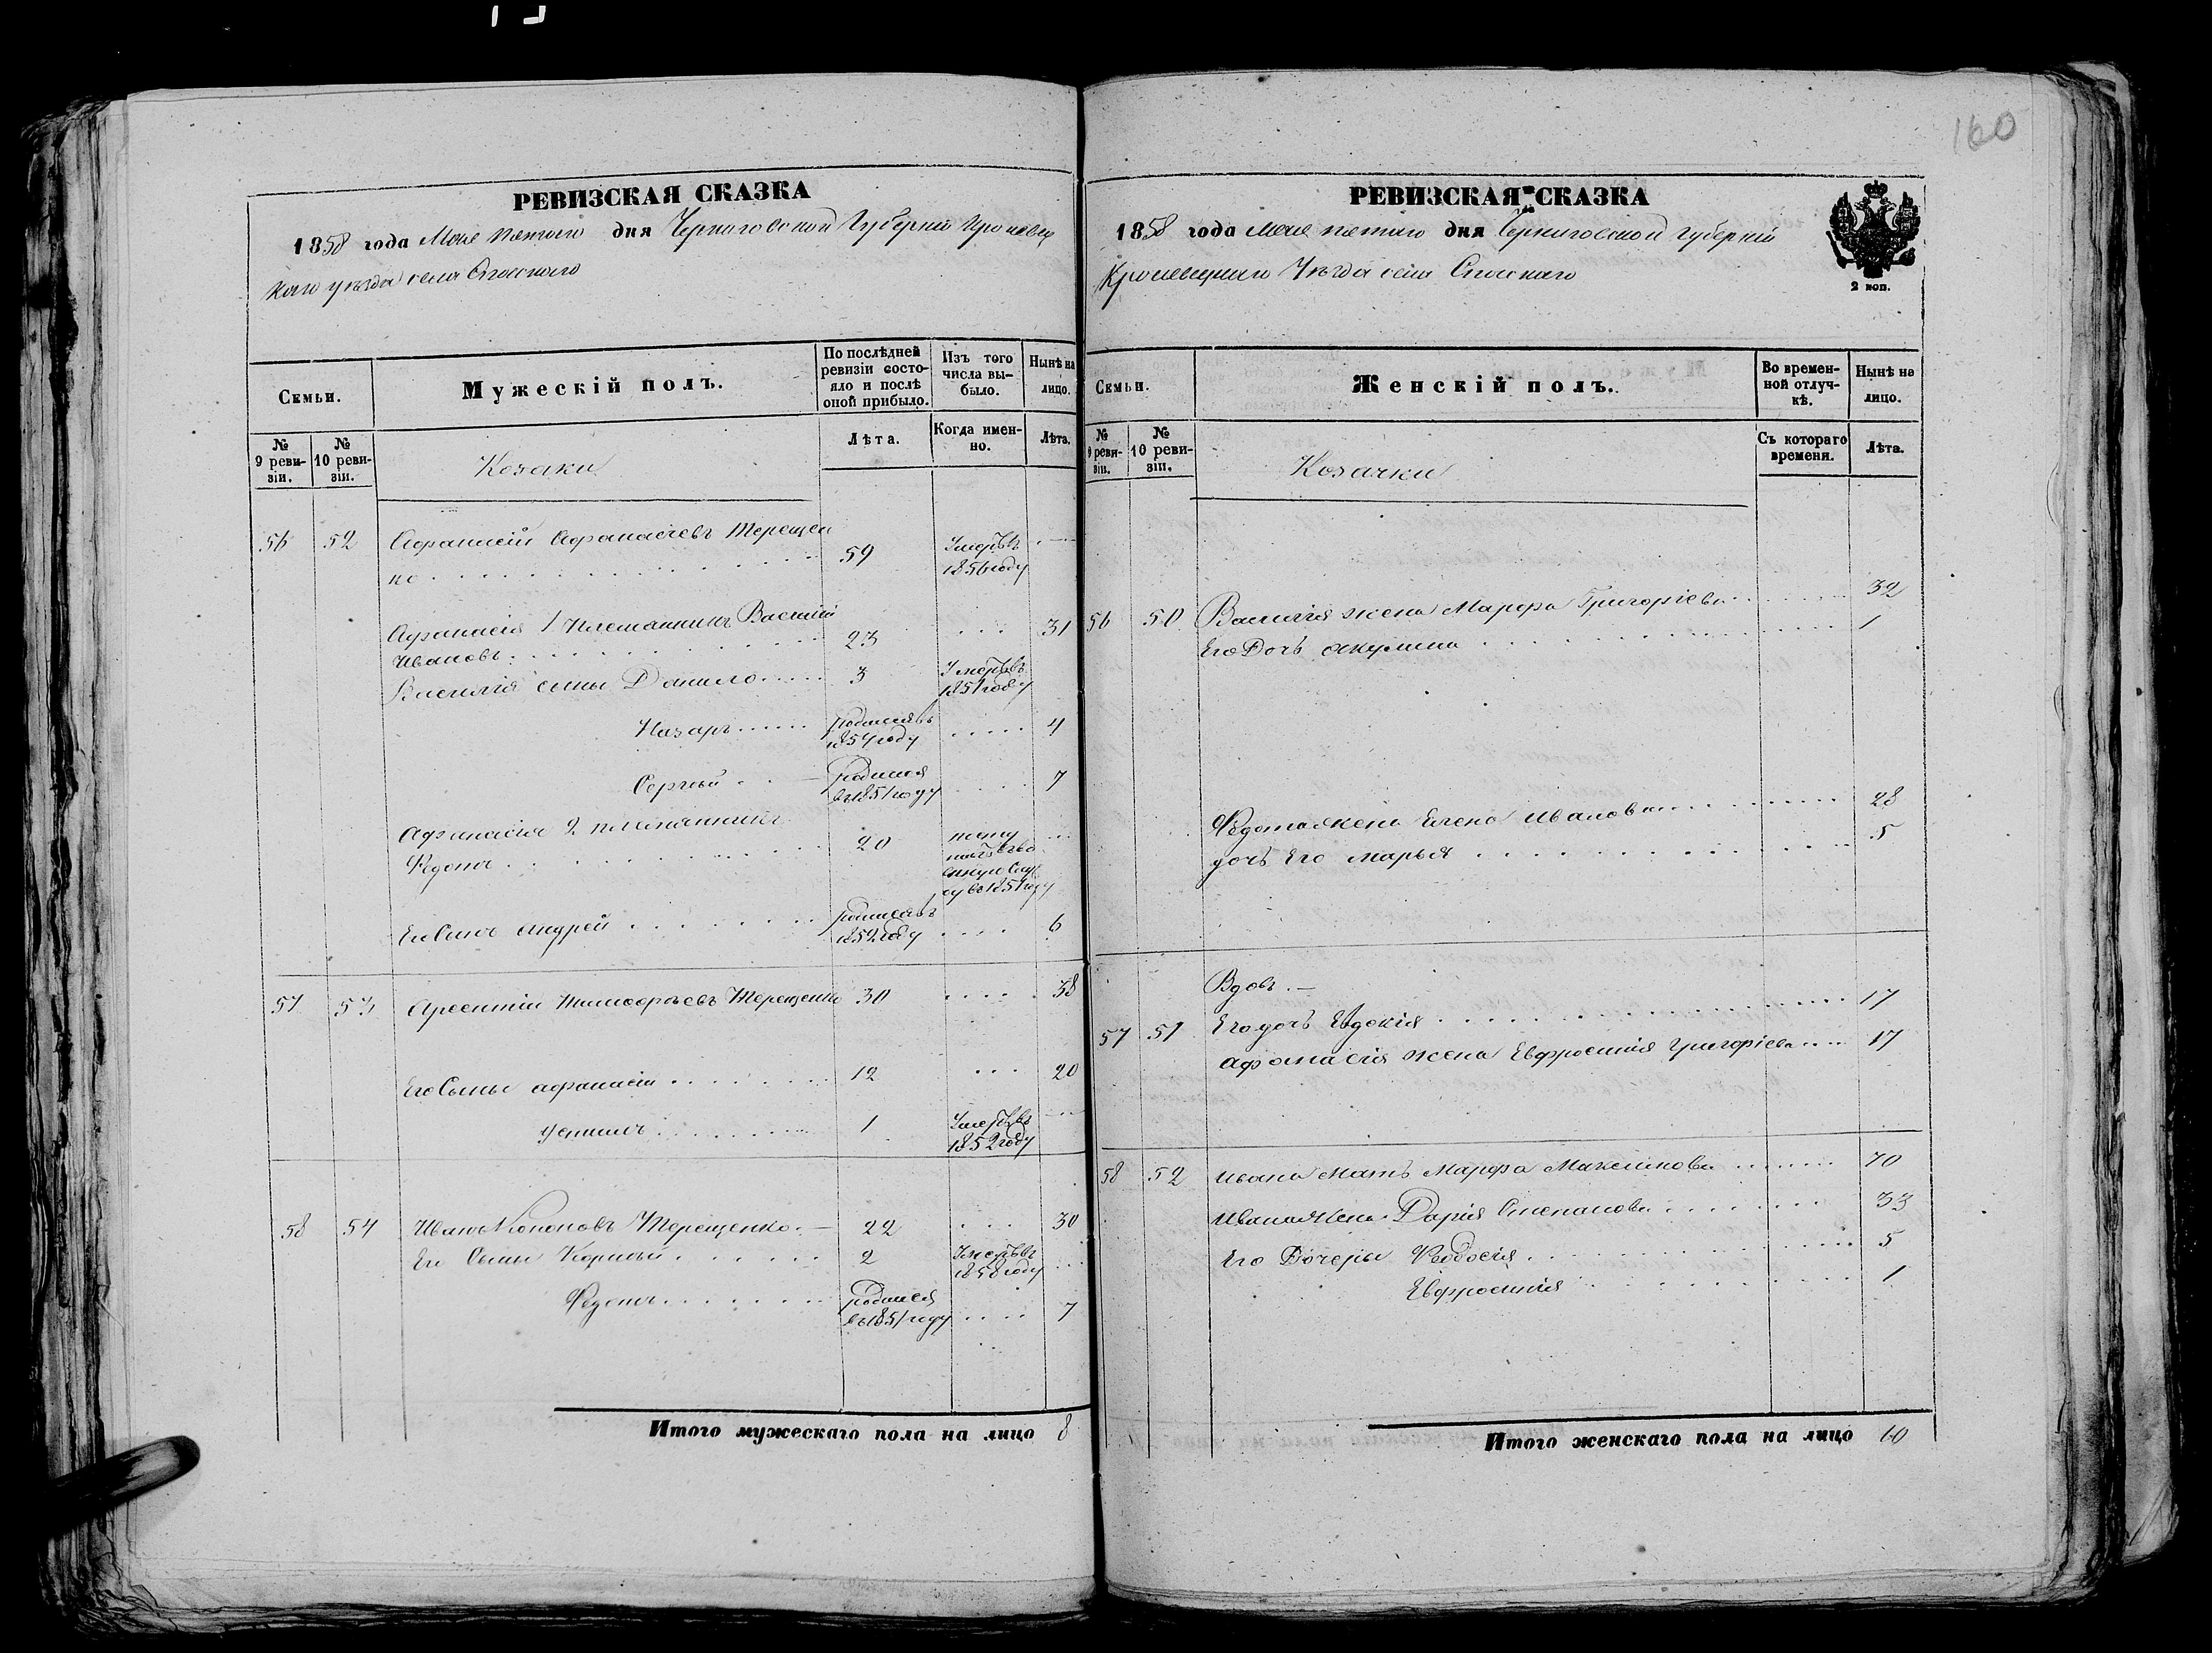 160
РЕВИЗСКАЯ СКАЗКА
1858 года Мая пятого дня Черниговской Губерніи Кролевец
каго уѣзда села Спаскаго
Семьи.
Мужескій полъ.
По послѣдней ревизіи состояло и послѣ оной прибыло.
Изъ того числа выбыло.
Нынѣ на лицо.
№ 9 ревизіи.
№ 10 ревизіи.
Козаки
Лѣта.
Когда именно.
Лѣта.
56 52 Афанасій Афанасіевъ Терещен
ко 59 Умеръ въ 1856 году
Афанасія 1 племянникъ Василій
Ивановъ 23 31
Василія сыны Данило 3 Умеръ въ 1851 году
Назаръ родился въ 1854 году 4
Сергѣй родился въ 1851 году 7
Афанасія 2 племянникъ
Федотъ 20 въ 1851 году
Его Сынъ Андрей родился въ 1852 году 6
57 53 Арсентій Тимофѣевъ Терещенко 30 38
Его Сыны Афанасій 12 20
1 Умеръ въ 1852 году
58 54 Иванъ Кононовъ Терещенко 22 30
Его Сыны Корнѣй 2 Умеръ въ 1858 году
Федотъ родился въ 1851 году 7
Итого мужескаго пола на лицо 8
РЕВИЗСКАЯ СКАЗКА
1858 года Мая пятаго дня Черниговской Губерніи
Кролевецкаго Уѣзда села Спаскаго
2 коп.
Семьи.
Женскій полъ.
Во временной отлучкѣ.
Нынѣ на лицо.
№ 9 ревизіи.
№ 10 ревизіи.
Козачки
Съ котораго времени.
Лѣта.
56 50 Василія жена Марфа Григоріева 32
Его Дочь Акулина 1
Федота жена Елена Иванова 28
дочь Его Марья 5
Вдовъ.
57 51 Его дочь Евдокія 17
Афанасія жена Евфросинія Григоріева 17
58 52 Ивана Мать Марфа Максимова 70
Ивана Жена Дарія Степанова 33
Его Дочеры Федосія 5
Евфросинія 1
Итого женскаго пола на лицо 10